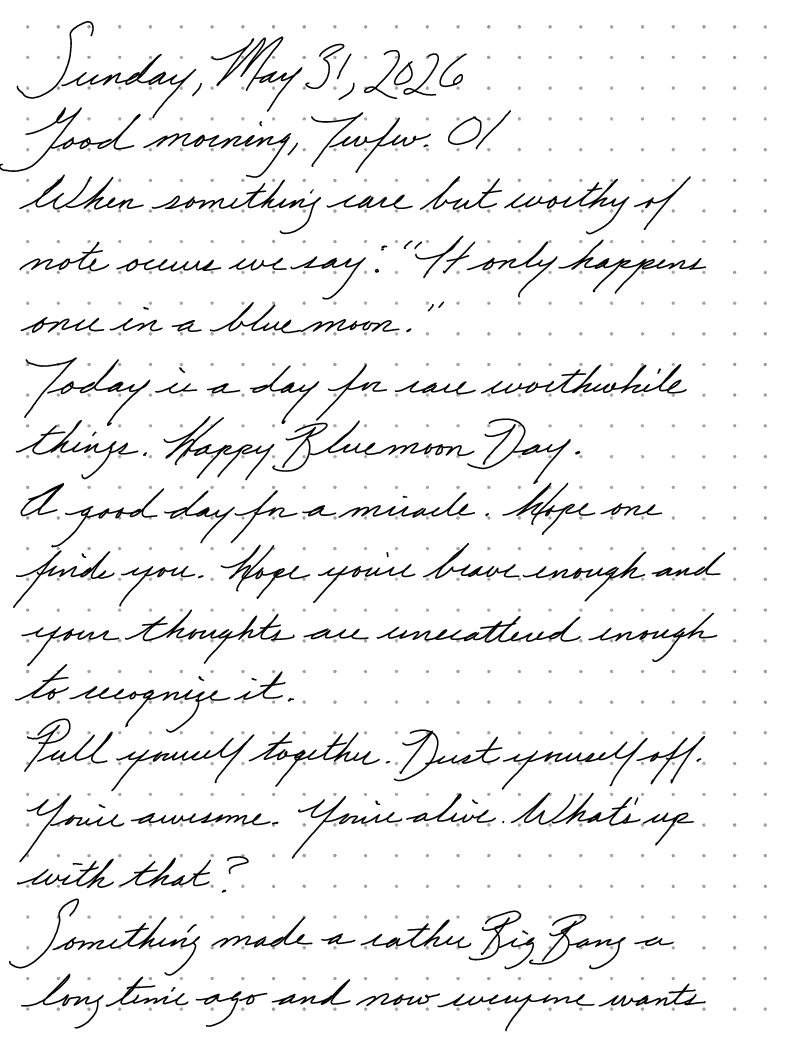 Sunday, May 31, 2026
Good morning, Twfw. 01
When something rare but worthy of
note occurs we say: "It only happens
once in a blue moon."
Today is a day for rare worthwhile
things. Happy Bluemoon Day.
A good day for a miracle. Hope one
finds you. Hope you're brave enough and
your thoughts are unscattered enough
to recognize it.
Pull yourself together. Dust yourself off.
You're awesome. You're alive. What's up
with that?
Something made a rather Big Bang a
long time ago and now everyone wants